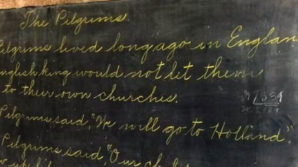 The Pilgrims.
Pilgrims lived long ago in Englan
nglish king would not let them
to their own churches.
Pilgrims said, "We will go to Holland".
Pilgrims said, "Our